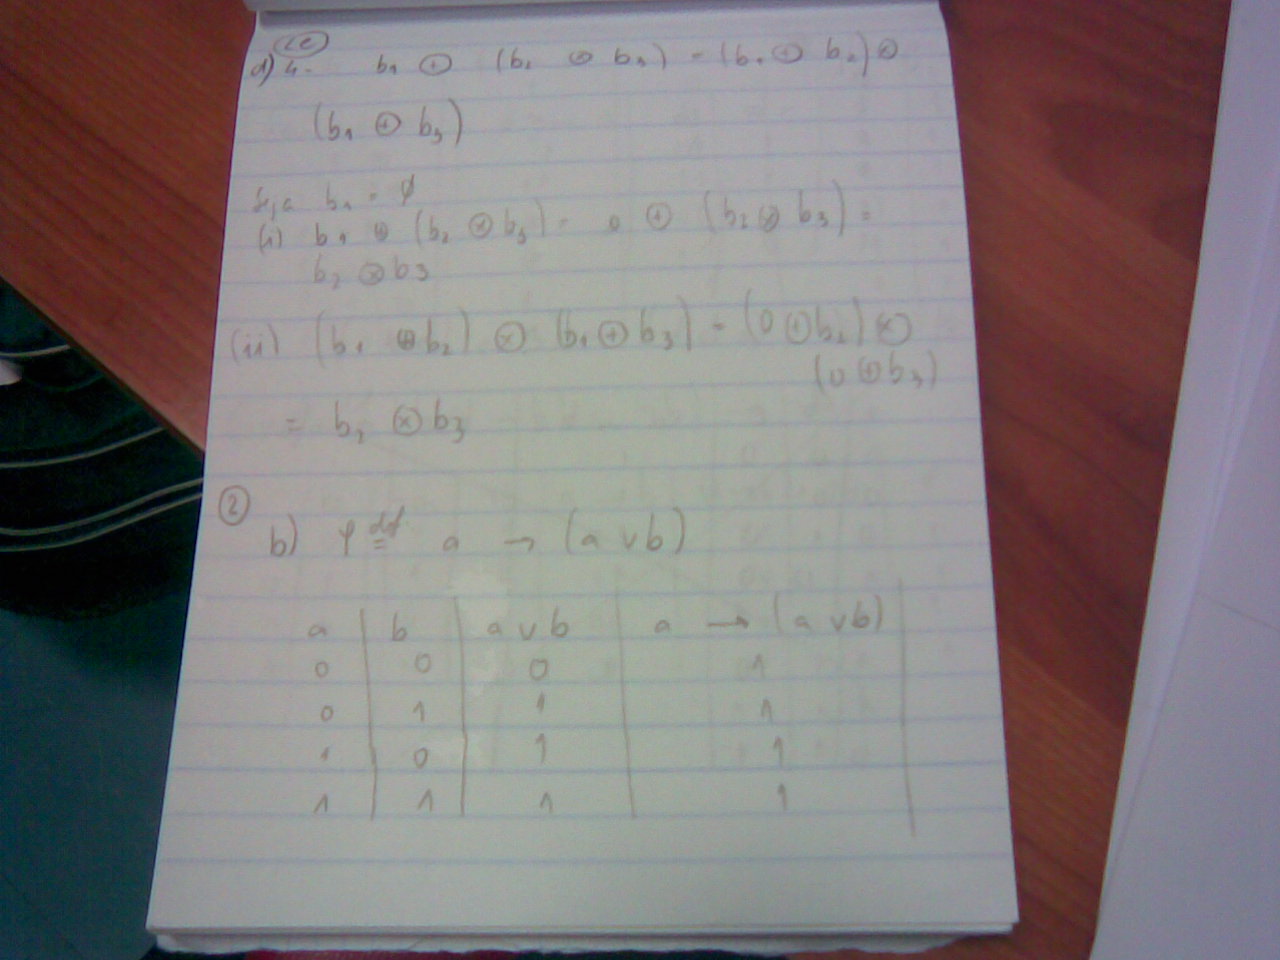 2e
d) 4. b1 ⊕ (b2 ⊗ b3) = (b1 ⊕ b2) ⊗
(b1 ⊕ b3)
Seja b1 = ∅
(i) b1 ⊕ (b2 ⊗ b3) = 0 ⊕ (b2 ⊗ b3) =
b2 ⊗ b3
(ii) (b1 ⊕ b2) ⊗ (b1 ⊕ b3) = (0 ⊕ b2) ⊗
(0 ⊕ b3)
= b2 ⊗ b3
2
b) φ def= a → (a ∨ b)
a b a ∨ b a → (a ∨ b)
0 0 0 1
0 1 1 1
1 0 1 1
1 1 1 1